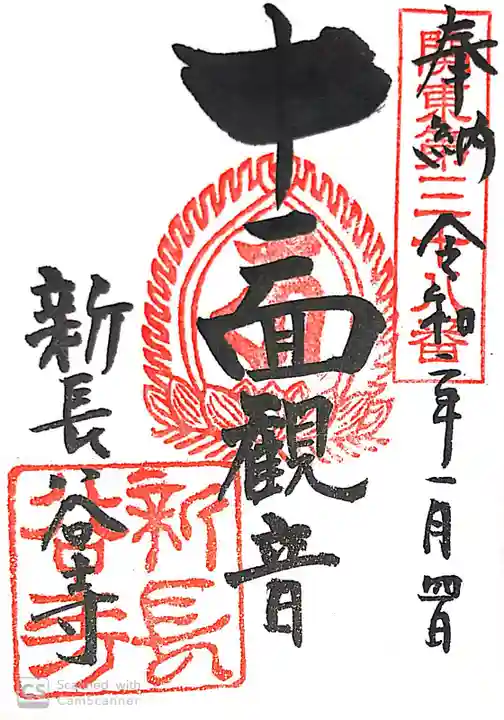 奉納 令和二年一月四日
関東第三十八番
十一面観音
新長谷寺
新長谷寺
CS Scanned with
CamScanner